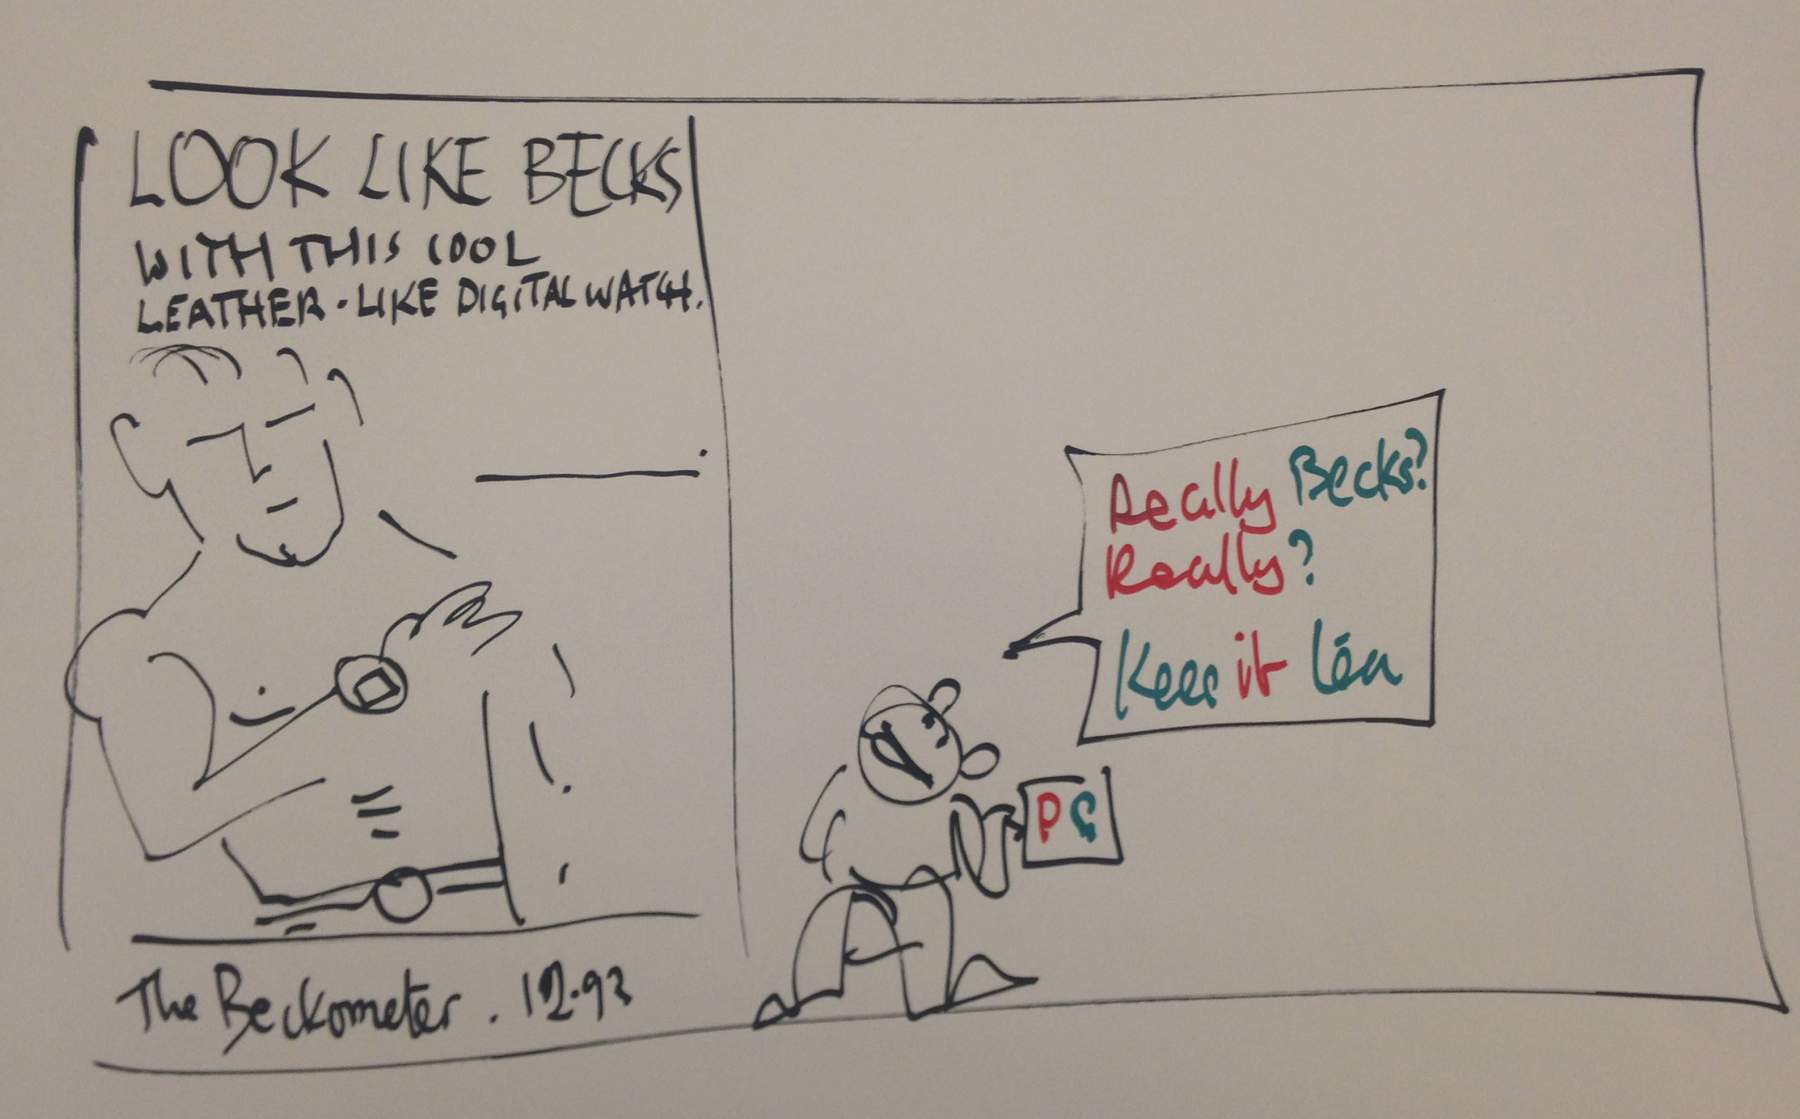 LOOK LIKE BECKS
WITH THIS COOL
LEATHER-LIKE DIGITAL WATCH.
The Beckometer. 12.93
Really Becks?
Really?
Keep it lēa
PC